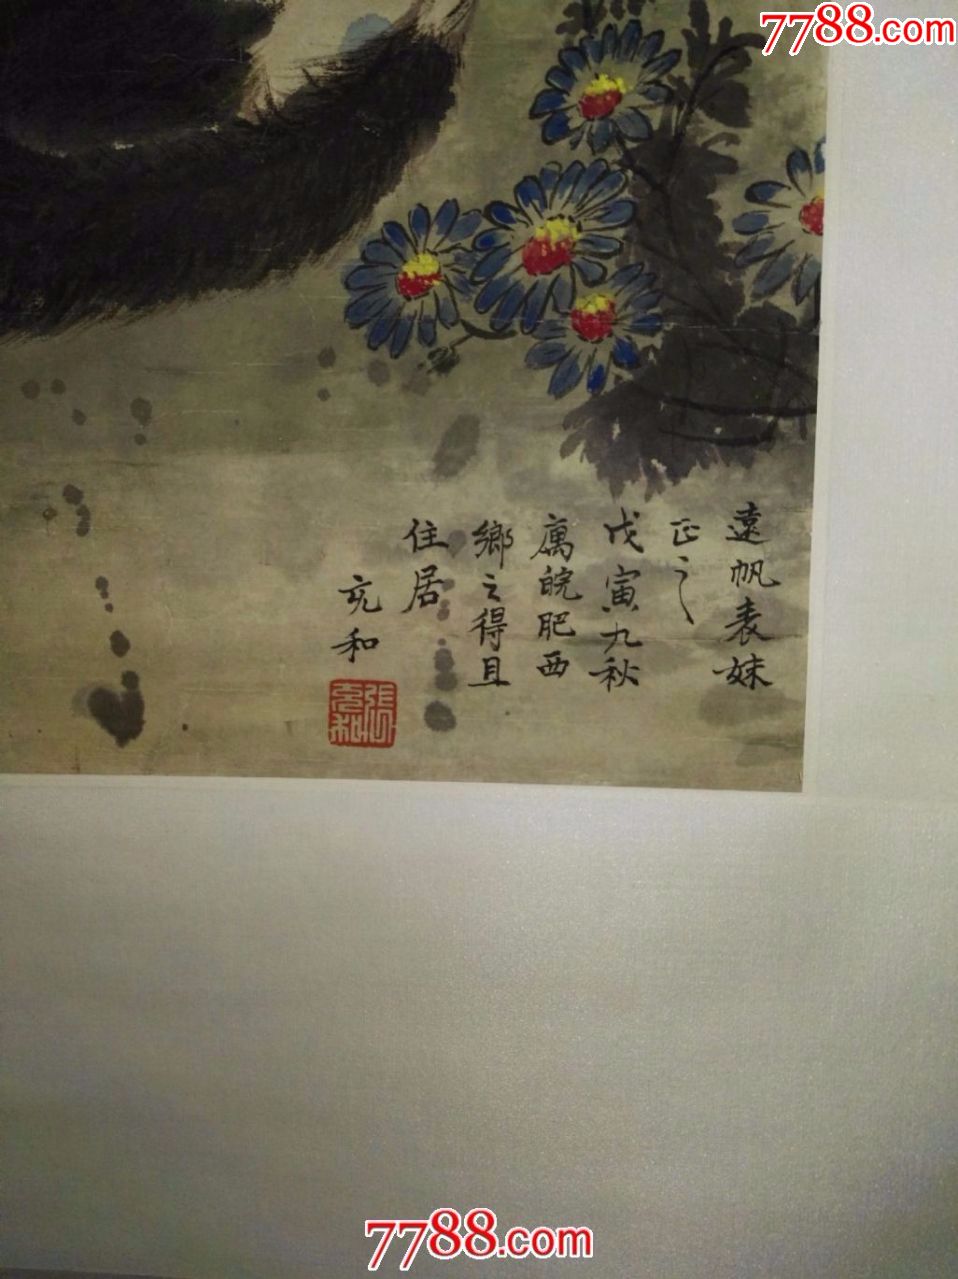 7788.com
遠帆表妹
正之
戊寅九秋
寓皖肥西
鄉之得且
住居
充和
張充和
7788.com